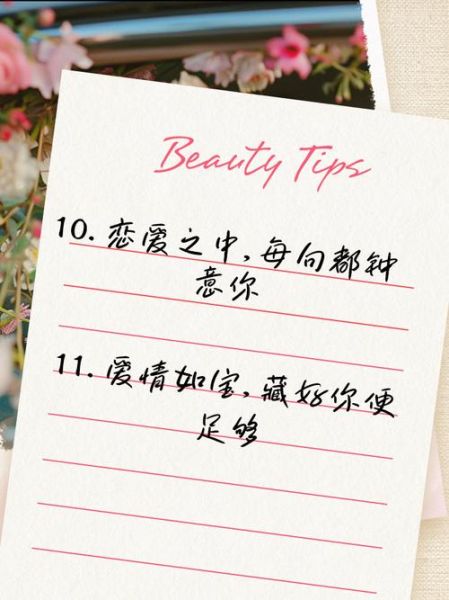 Beauty Tips
10. 恋爱之中,每句都钟
意你
11. 爱情如宝,藏好你便
足够